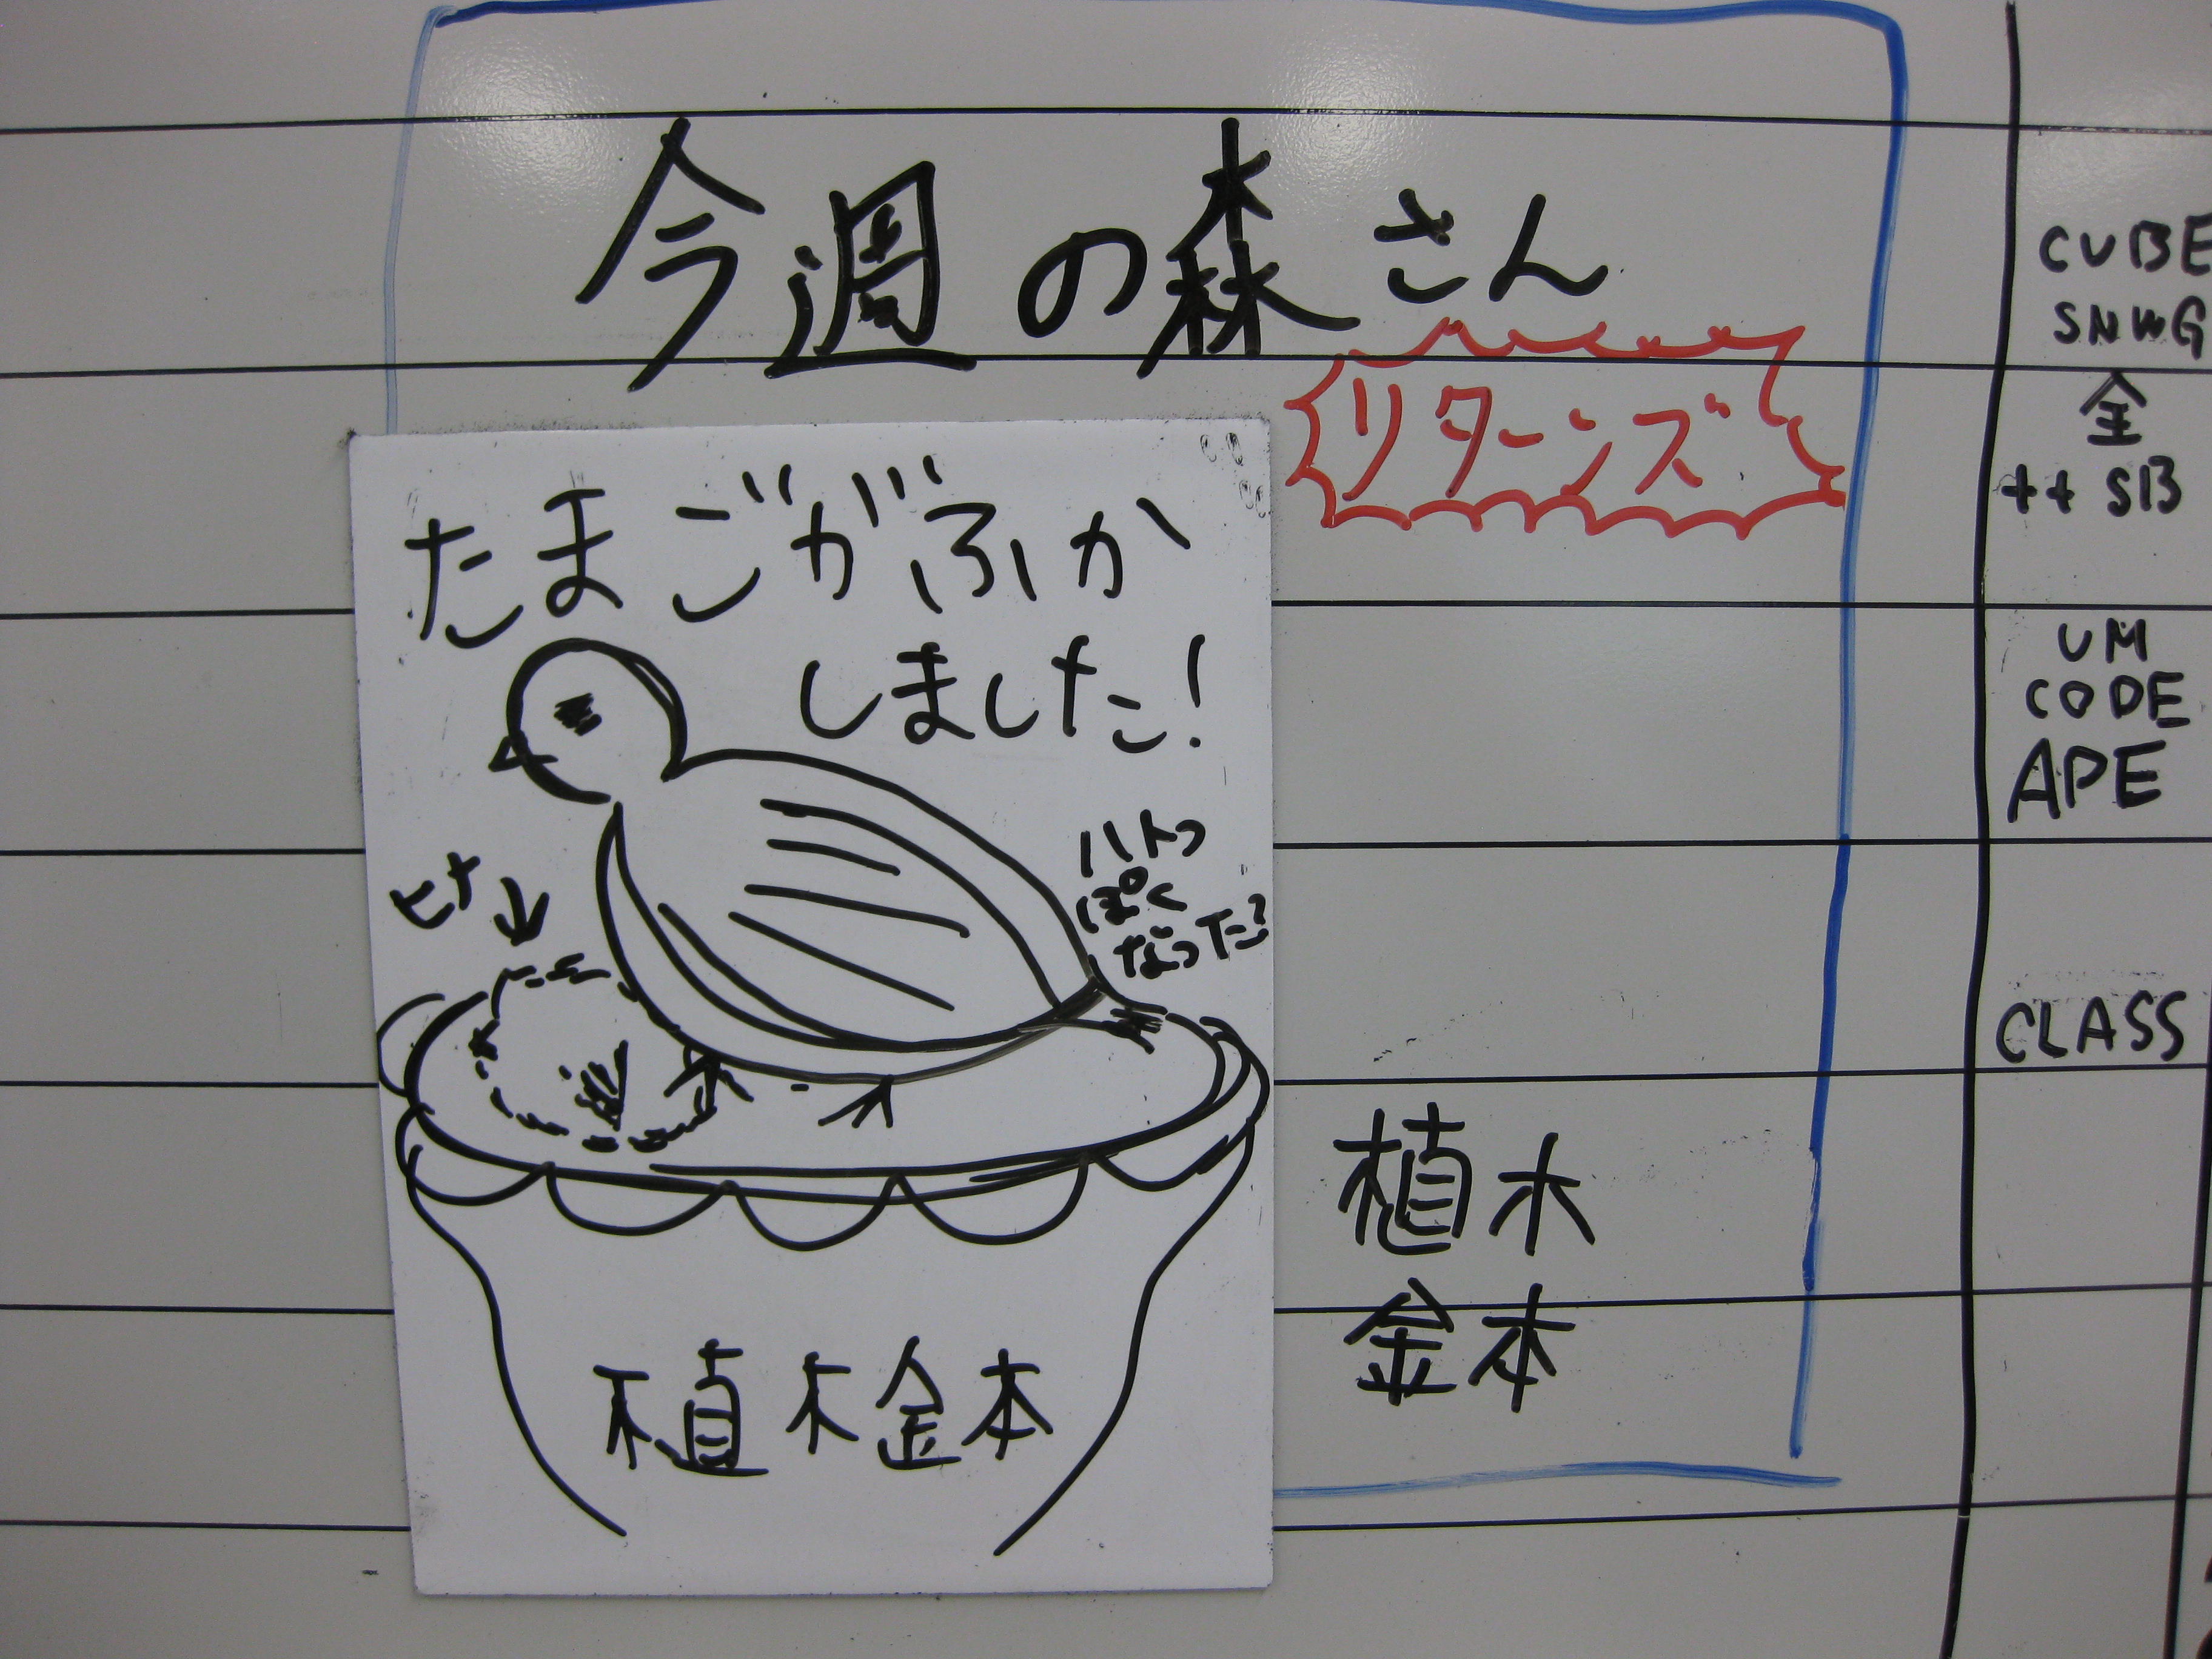 今週の森さん
リターンズ
たまごがふか
しました!
ハトっ
ぽく
なった?
ヒナ↓
植木金本
植木
金本
CUBE
SNWG
全
++ SB
UM
CODE
APE
CLASS